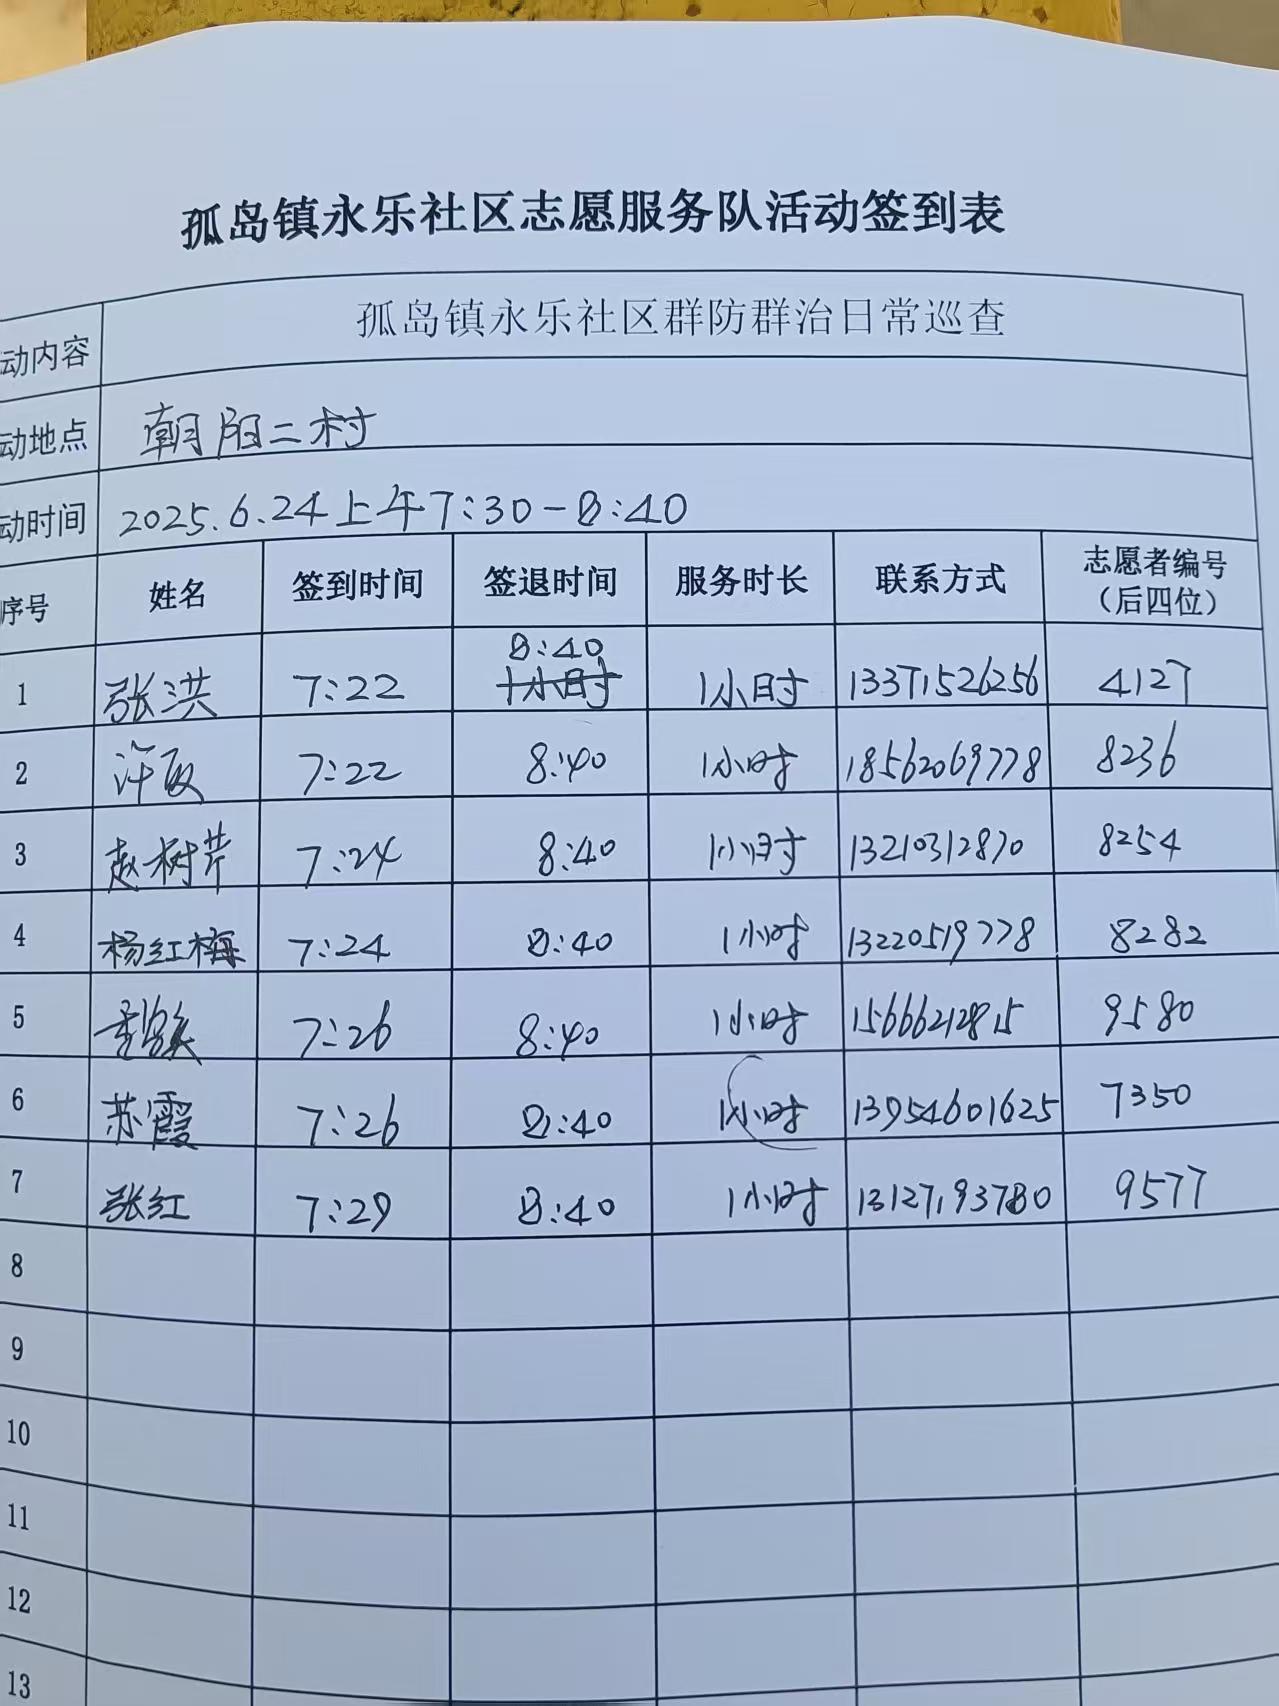 孤岛镇永乐社区志愿服务队活动签到表
动内容 孤岛镇永乐社区群防群治日常巡查
动地点 朝阳二村
动时间 2025.6.24上午7:30-8:40
序号 姓名 签到时间 签退时间 服务时长 联系方式 志愿者编号（后四位）
1 张洪 7:22 1小时 8:40 1小时 13371526256 4127
2 许敏 7:22 8:40 1小时 18562069778 8236
3 赵树芹 7:24 8:40 1小时 13210312870 8254
4 杨红梅 7:24 8:40 1小时 13220519778 8282
5 7:26 8:40 1小时 15666212815 9580
6 苏霞 7:26 8:40 1小时 13954601625 7350
7 张红 7:29 8:40 1小时 13127193780 9577
8
9
10
11
12
13